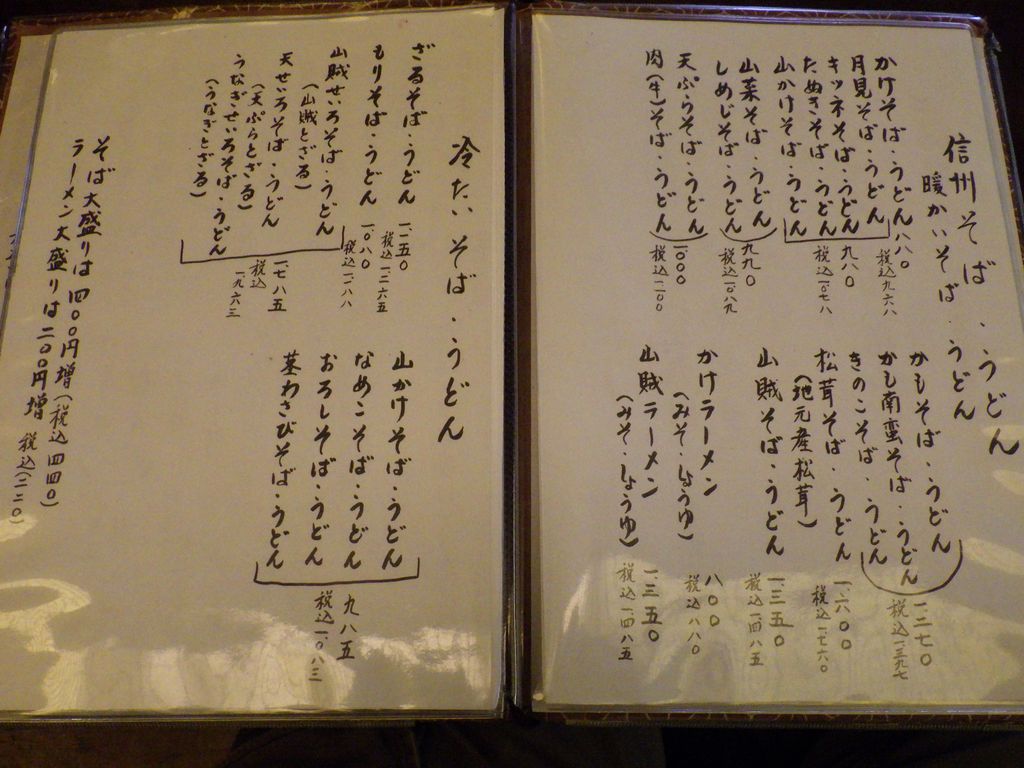 信州そば・うどん
暖かいそば・うどん
かけそば・うどん 八八〇
税込九六八
月見そば・うどん
キツネそば・うどん
たぬきそば・うどん
山かけそば・うどん
九八〇
税込一〇七八
山菜そば・うどん
しめじそば・うどん
九九〇
税込一〇八九
天ぷらそば・うどん
肉(牛)そば・うどん
一〇〇〇
税込一一〇〇
かもそば・うどん
かも南蛮そば・うどん
きのこそば・うどん
一.二七〇
税込一三九七
松茸そば・うどん
(地元産松茸)
一.六〇〇
税込一七六〇
山賊そば・うどん
一.三五〇
税込一.四八五
かけラーメン
(みそ・しょうゆ)
八〇〇
税込八八〇
山賊ラーメン
(みそ・しょうゆ)
一.三五〇
税込一.四八五
冷たいそば・うどん
ざるそば・うどん
一.一五〇
税込一二六五
もりそば・うどん
一〇八〇
税込一一八八
山賊せいろそば・うどん
(山賊とざる)
天せいろそば・うどん
(天ぷらとざる)
うなぎせいろそば・うどん
(うなぎとざる)
一七八五
税込
一.九六三
山かけそば・うどん
なめこそば・うどん
おろしそば・うどん
茎わさびそば・うどん
九八五
税込一.〇八三
そば大盛りは四〇〇円増(税込四四〇)
ラーメン大盛りは二〇〇円増 税込(二二〇)